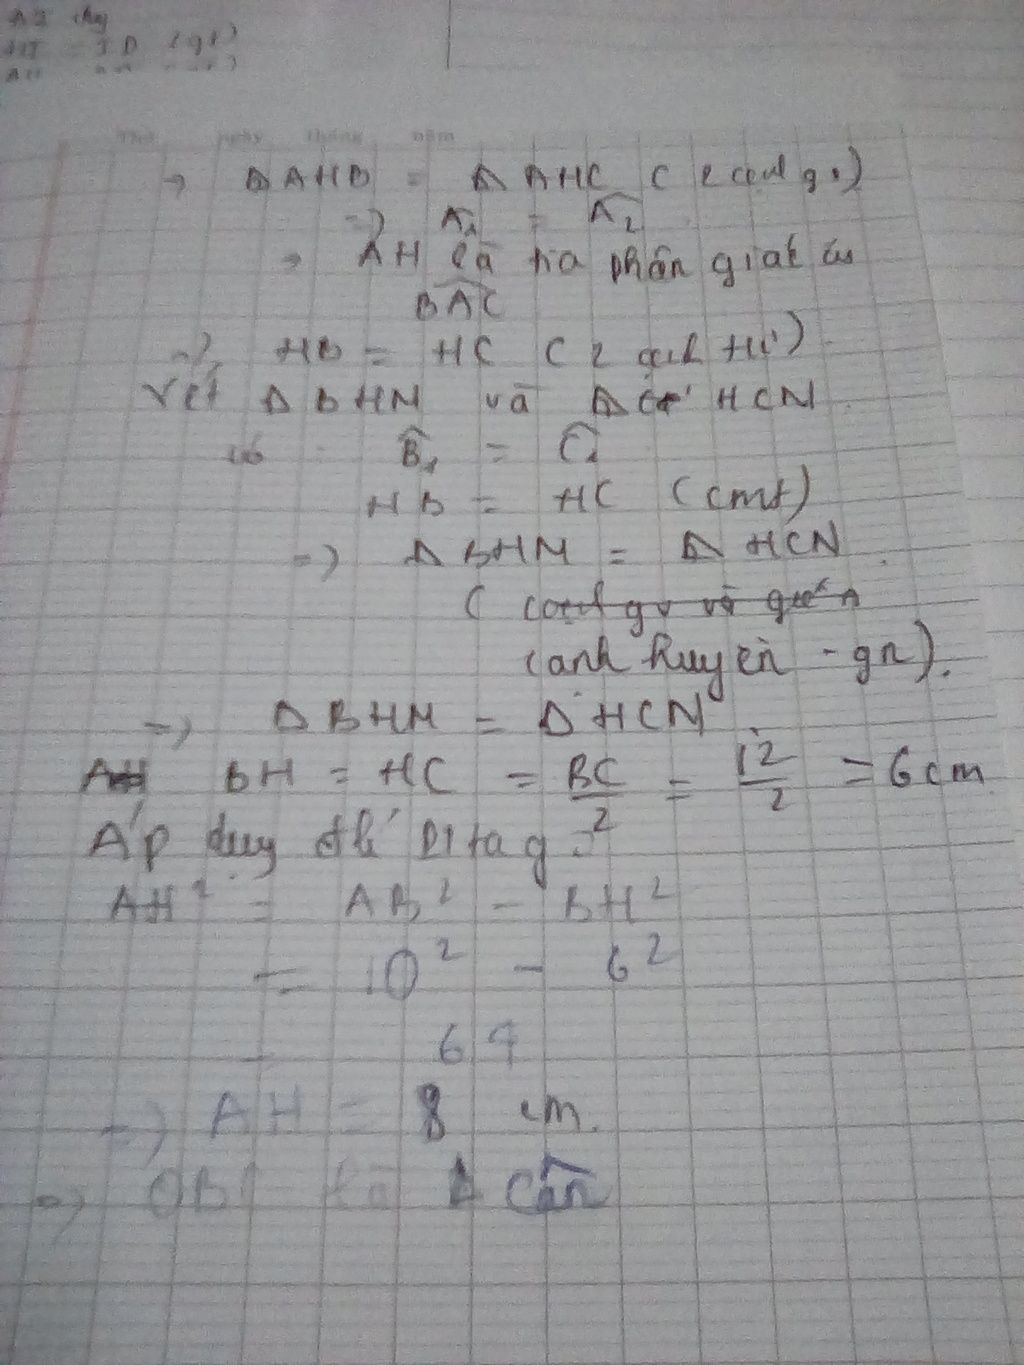 A2 chg
= ID (gt)
Thứ ngày tháng năm
→ Δ AHB = Δ AHC ( 2 cạnh gv)
=> Â1 = Â2
→ AH là tia phân giác của
BAC
=> HB = HC ( 2 cạnh )
Xét Δ BHM và Δ HCN
có B̂1 = Ĉ1
HB = HC (cmt)
=> Δ BHM = Δ HCN
( gv và góc n
cạnh huyền - gn).
=> Δ BHM = Δ HCN
BH = HC = BC/2 = 12/2 = 6 cm
Áp dụng đlí Pitag :
AH² = AB² - BH²
= 10² - 6²
= 64
=> AH = 8 cm.
=> OBC là Δ cân